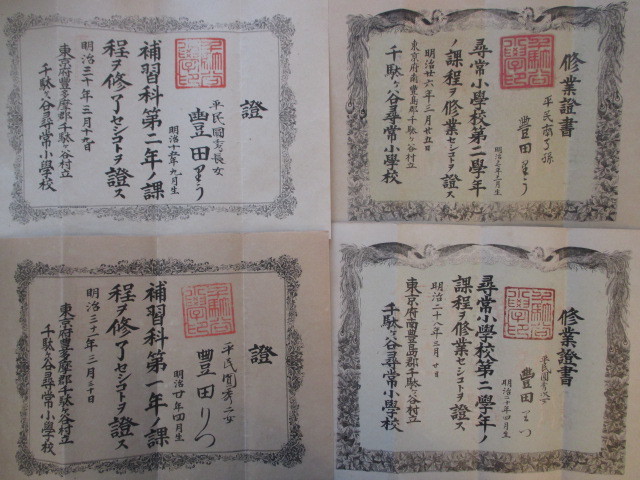 證
平民國五郎長女
豐田里う
明治十六年九月生
補習科第二年ノ課
程ヲ修了セシコトヲ證ス
明治三十年三月十九日
東京府豊多摩郡千駄ヶ谷村立
千駄ヶ谷尋常小學校
修業證書
平民
孫
豐田里う
明治
年
月生
尋常小學校第二學年
ノ課程ヲ修業セシコトヲ證ス
明治廿六年三月廿五日
東京府南豊島郡千駄ヶ谷村立
千駄ヶ谷尋常小學校
證
平民
二女
豐田りつ
明治廿年四月生
補習科第一年ノ課
程ヲ修了セシコトヲ證ス
明治三十一年三月三十日
東京府豊多摩郡千駄ヶ谷村立
千駄ヶ谷尋常小學校
修業證書
平民
女
豐田りつ
明治二十年四月生
尋常小學校第二學年ノ
課程ヲ修業セシコトヲ證ス
明治二十八年三月
日
東京府南豊島郡千駄ヶ谷村立
千駄ヶ谷尋常小學校